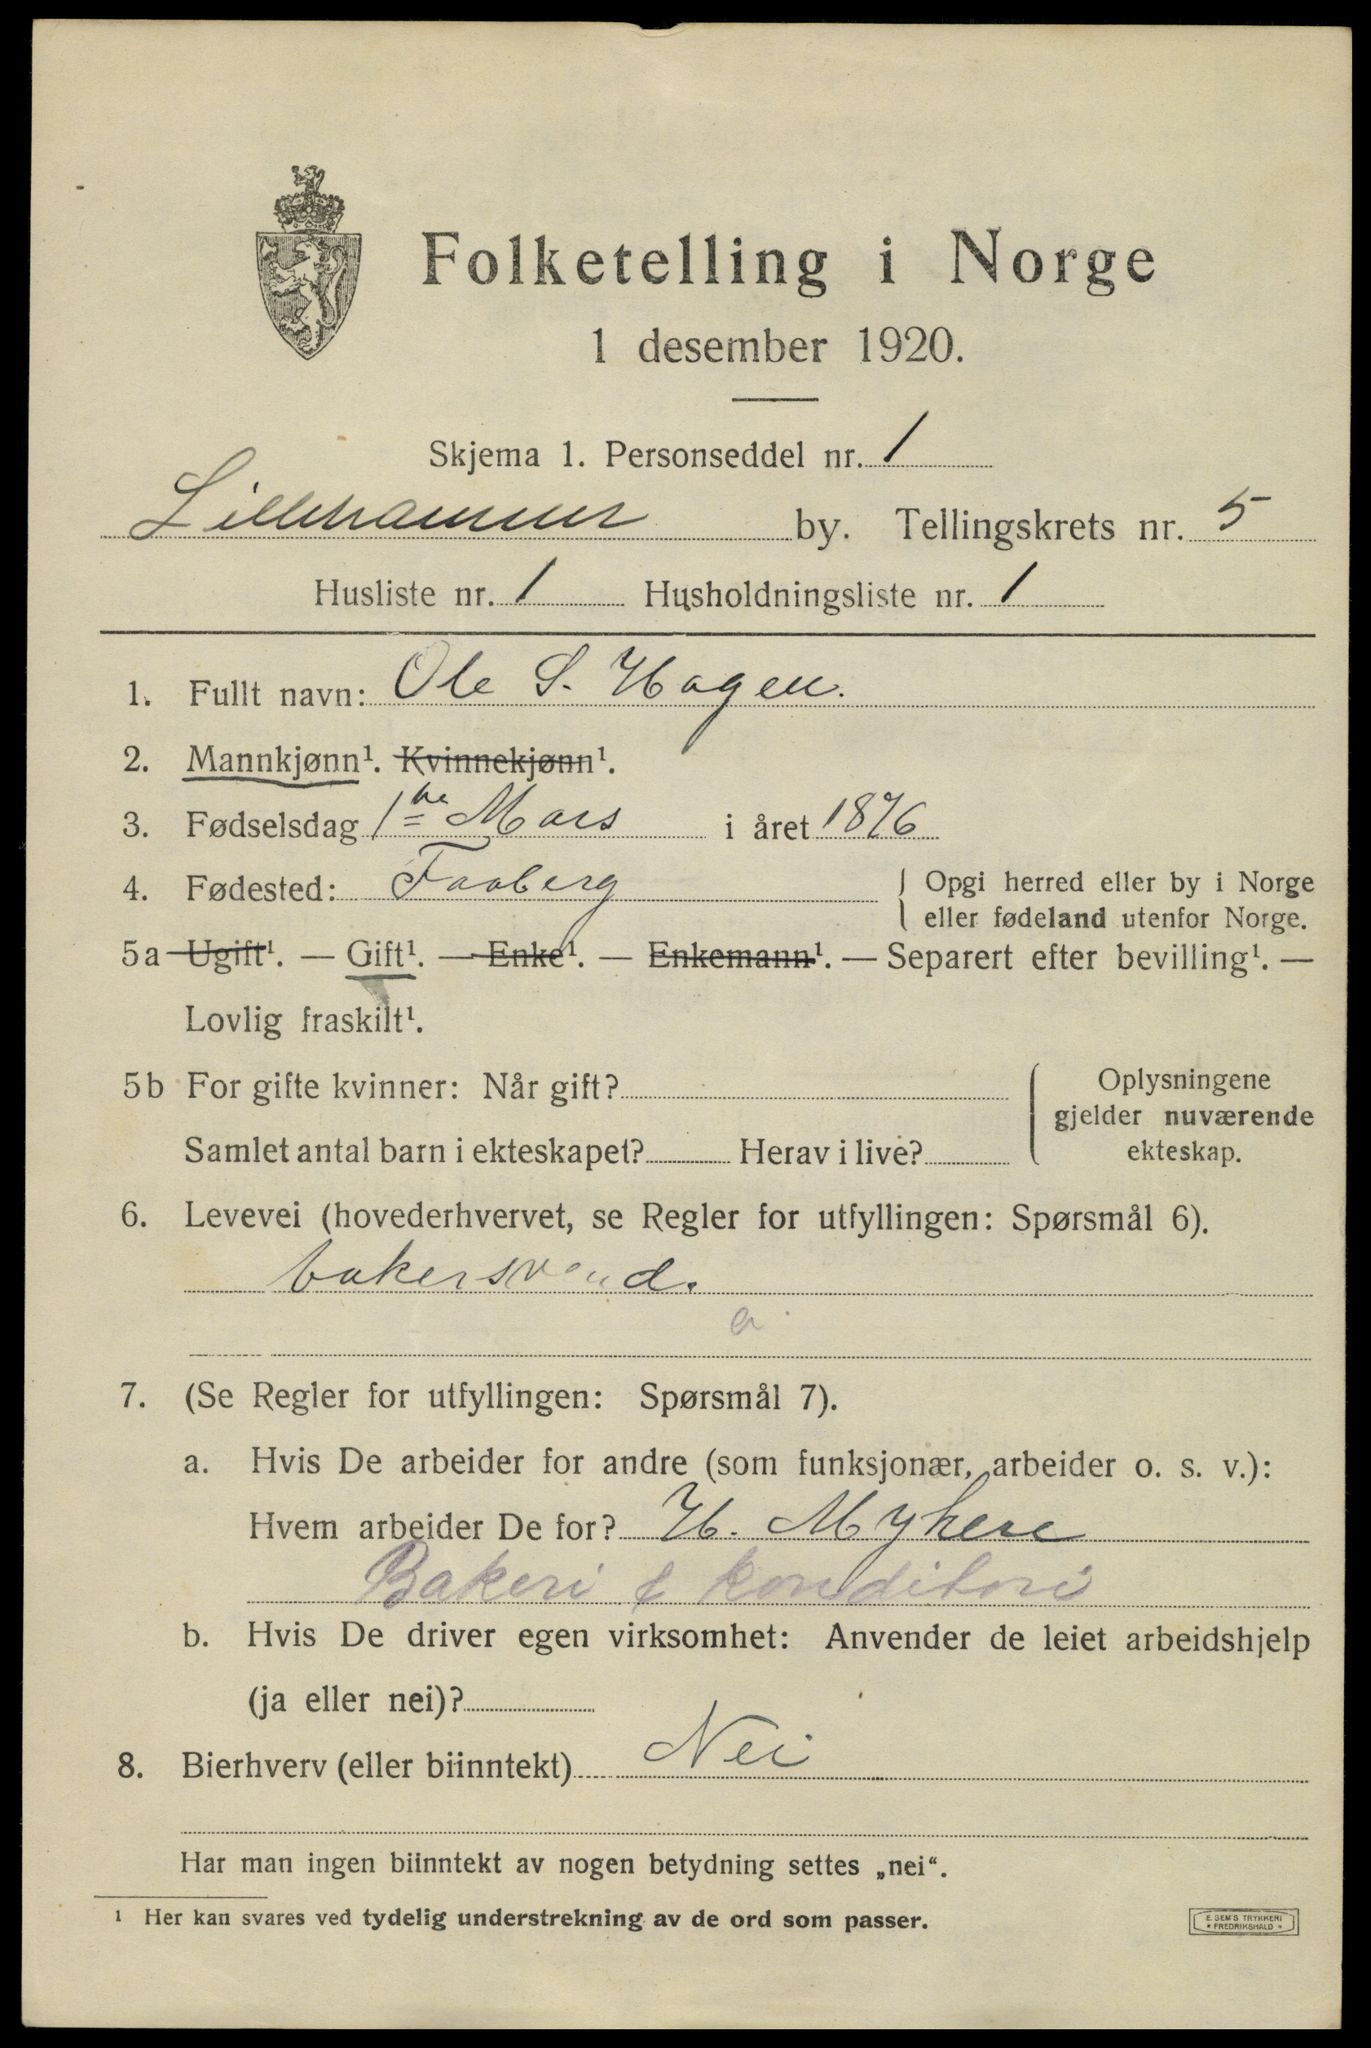 Folketelling i Norge
1 desember 1920.
Skjema 1. Personseddel nr. 1
Lillehammer by. Tellingskrets nr. 5
Husliste nr. 1 Husholdningsliste nr. 1
1. Fullt navn: Ole S. Hagen.
2. Mannkjønn¹. Kvinnekjønn¹.
3. Fødselsdag 1ste Mars i året 1876
4. Fødested: Faaberg { Opgi herred eller by i Norge
eller fødeland utenfor Norge.
5a Ugift¹. — Gift¹. — Enke¹. — Enkemann¹. — Separert efter bevilling¹. —
Lovlig fraskilt¹.
5b For gifte kvinner: Når gift?
Samlet antal barn i ekteskapet? Herav i live?
Oplysningene
gjelder nuværende
ekteskap.
6. Levevei (hovederhvervet, se Regler for utfyllingen: Spørsmål 6).
bakersvend.
a
7. (Se Regler for utfyllingen: Spørsmål 7).
a. Hvis De arbeider for andre (som funksjonær, arbeider o. s. v.):
Hvem arbeider De for? H. Myhere
Bakeri & konditori
b. Hvis De driver egen virksomhet: Anvender de leiet arbeidshjelp
(ja eller nei)?
8. Bierhverv (eller biinntekt) Nei
Har man ingen biinntekt av nogen betydning settes „nei“.
¹ Her kan svares ved tydelig understrekning av de ord som passer.
E. SEM'S TRYKKERI
* FREDRIKSHALD *